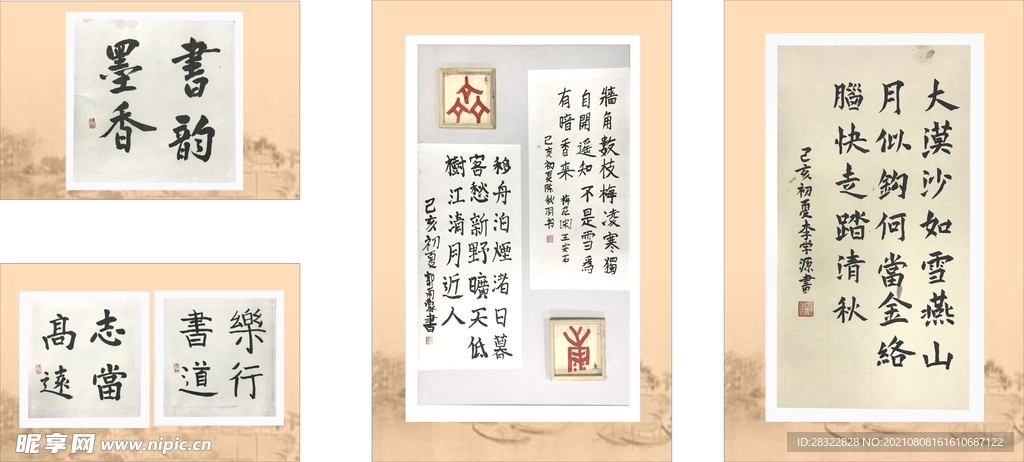 書韵
墨香
樂行
書道
志當
高遠
移舟泊煙渚日暮
客愁新野曠天低
樹江清月近人
己亥初夏
牆角數枝梅凌寒獨
自開遥知不是雪為
有暗香来
梅花
王安石
己亥初夏陈秋羽书
大漠沙如雪燕山
月似鈎何當金絡
腦快走踏清秋
己亥初夏李学源書
昵享网 www.nipic.cn
ID:28322828 NO:20210808161610687122